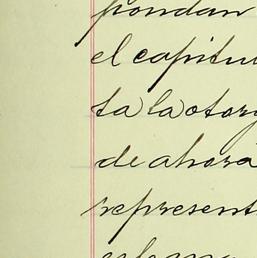 pondan
el capitu
ta la otorg
de ahora
represent